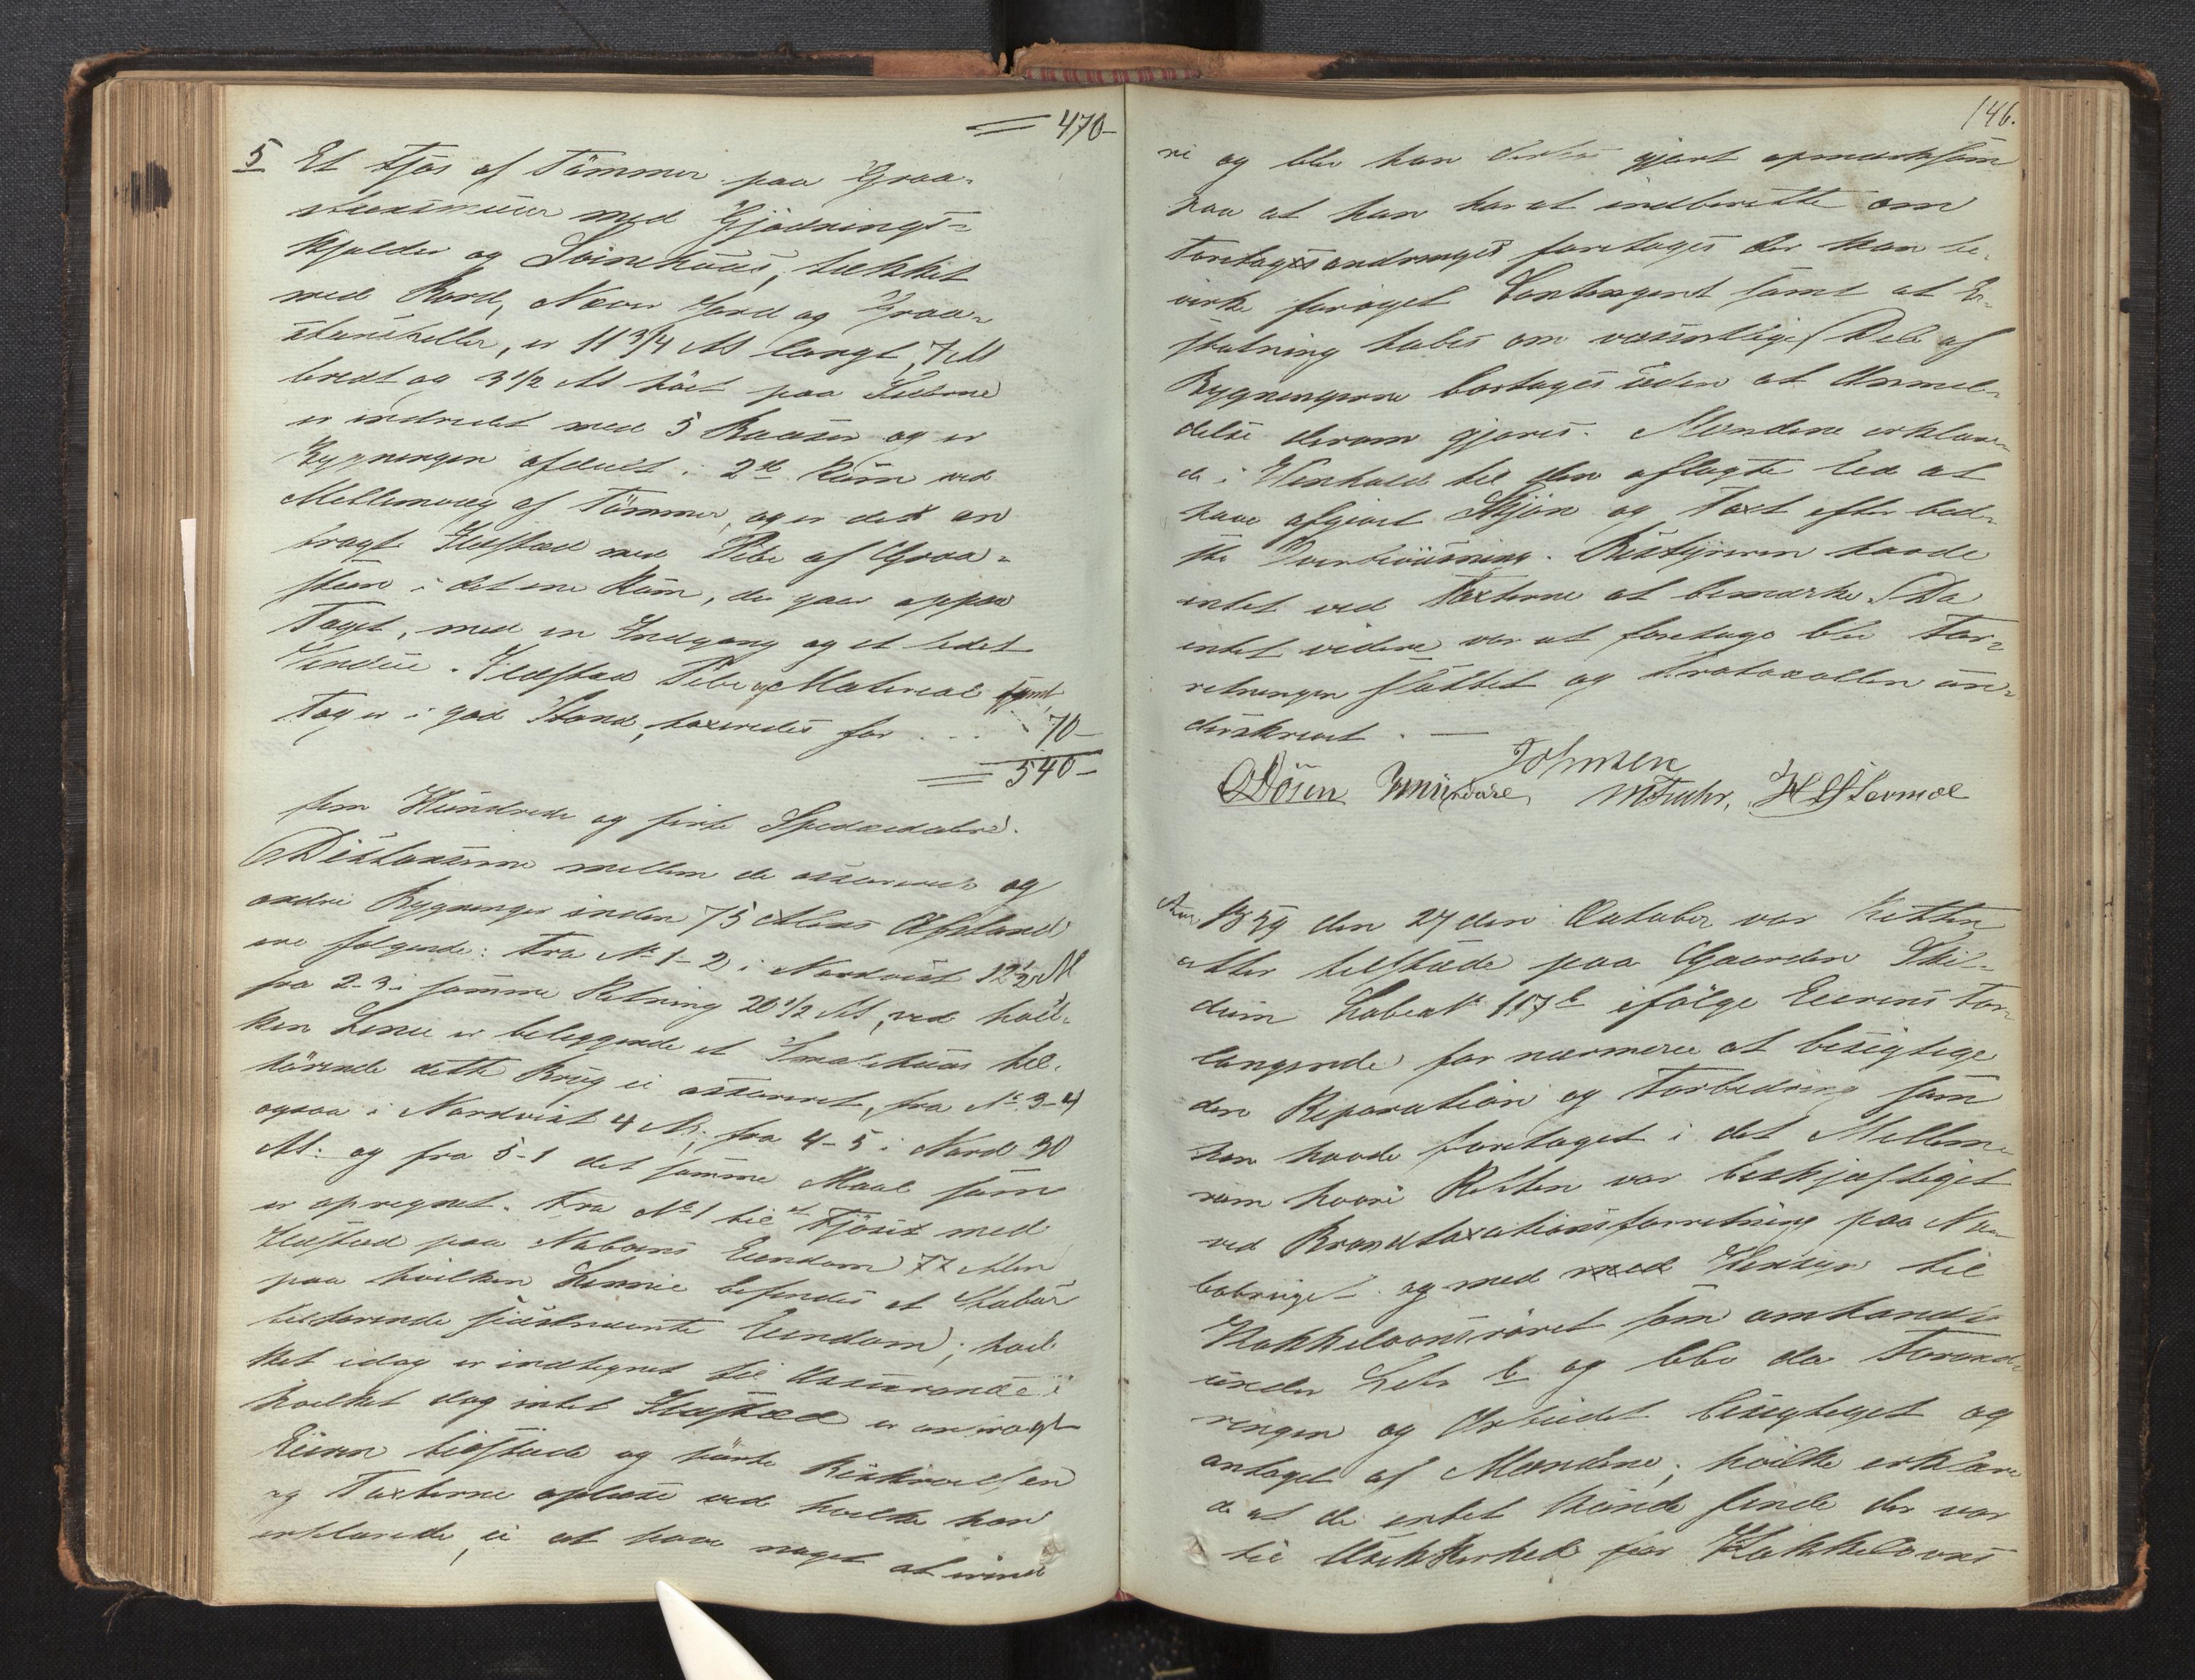 470-
5 Et Fjøs af Tømmer paa Graa-
steensmuur med Gjødnings-
kjelder og Svinehuus, tækket
med Bord, Næver Jord og Graa-
steenheller, er 11 3/4 Al langt, 7 Al
bredt og 3 1/2 Al høit paa Siderne
er indredet med 5 Baaser og er
Bygningen afdeelt i 2de Rum ved
Mellemvæg af Tømmer, og er det an
bragt Ildsted med Pibe af Graa-
steen i det ene Rum, der gaar op paa
Taget, med en Indgang og et lidet
Vindue. Ildsted Pibe og Material samt
Tag er i god Stand, taxeredes for . . . 70-
540-
fem Hundrede og firti Speciedaler.
Distanserne mellem de assurerede og
andre Bygninger inden 75 Alens Afstand
ere følgende: Fra No 1-2 i Nordvest 12 1/2 Al
fra 2-3 i samme Retning 20 1/2 Al, ved hvil-
ken Linie er beliggende et Smalehuus til-
hørende dette Brug ei assureret, fra No 3-4
ogsaa i Nordvest 4 Al; fra 4-5 i Nord 30
Al: og fra 5-1 det samme Maal som
er opregnet. Fra No 1 til et Fjøset med
Ildsted paa Naboens Eiendom 77 Alen
paa hvilken Linnie befindes et Stabur
tilhørende sidstnævnte Eiendom; hvil
ket idag er indtegnet til Assurance i
hvilket dog intet Ildsted er anbragt
Eieren tilstæde og hørte Beskrivelsen
og Taxterne oplæse ved hvilke han
erklærede, ei at have noget at erind
146.
re og blev han derhos gjort opmærksom
paa at han har at indberette om
Foretages andringer foretages der kan be-
virke forøget Contingent samt at Er-
statning tabes om væsentlige Dele af
Bygningerne borttages uden at Anmel-
delse derom gjøres. Mændene erklære-
de i Henhold til den aflagte Eed at
have afgivet Skjøn og Taxt efter bed-
ste Overbeviisning. Bestyreren havde
intet ved Taxterne at bemærke. Da
intet videre var at foretage blev For-
retningen sluttet og Protocollen un-
derskrevet. —
Johnsen
O Døsen M Fuhr, H L Stermoe
Aar 1859 den 27den October var Retten
atter tilstæde paa Gaarden Ski-
deim Løbeno 117b ifølge Eierens For
langende for nærmere at besigtige
den Reparation og Forbedring som
han havde foretaget i det Mellem-
rum hvori Retten var beskjæftiget
ved Brandtaxationsforretning paa Na-
bobruget og med med Hensyn til
Kakkelovnsrøret som omhandles
under Litr b og blev da Forand-
ringen og Arbeidet besigtiget og
antaget af Mændene, hvilke erklære
de at de intet kunde finde der var
til Usikkerhed for Kakkelovns